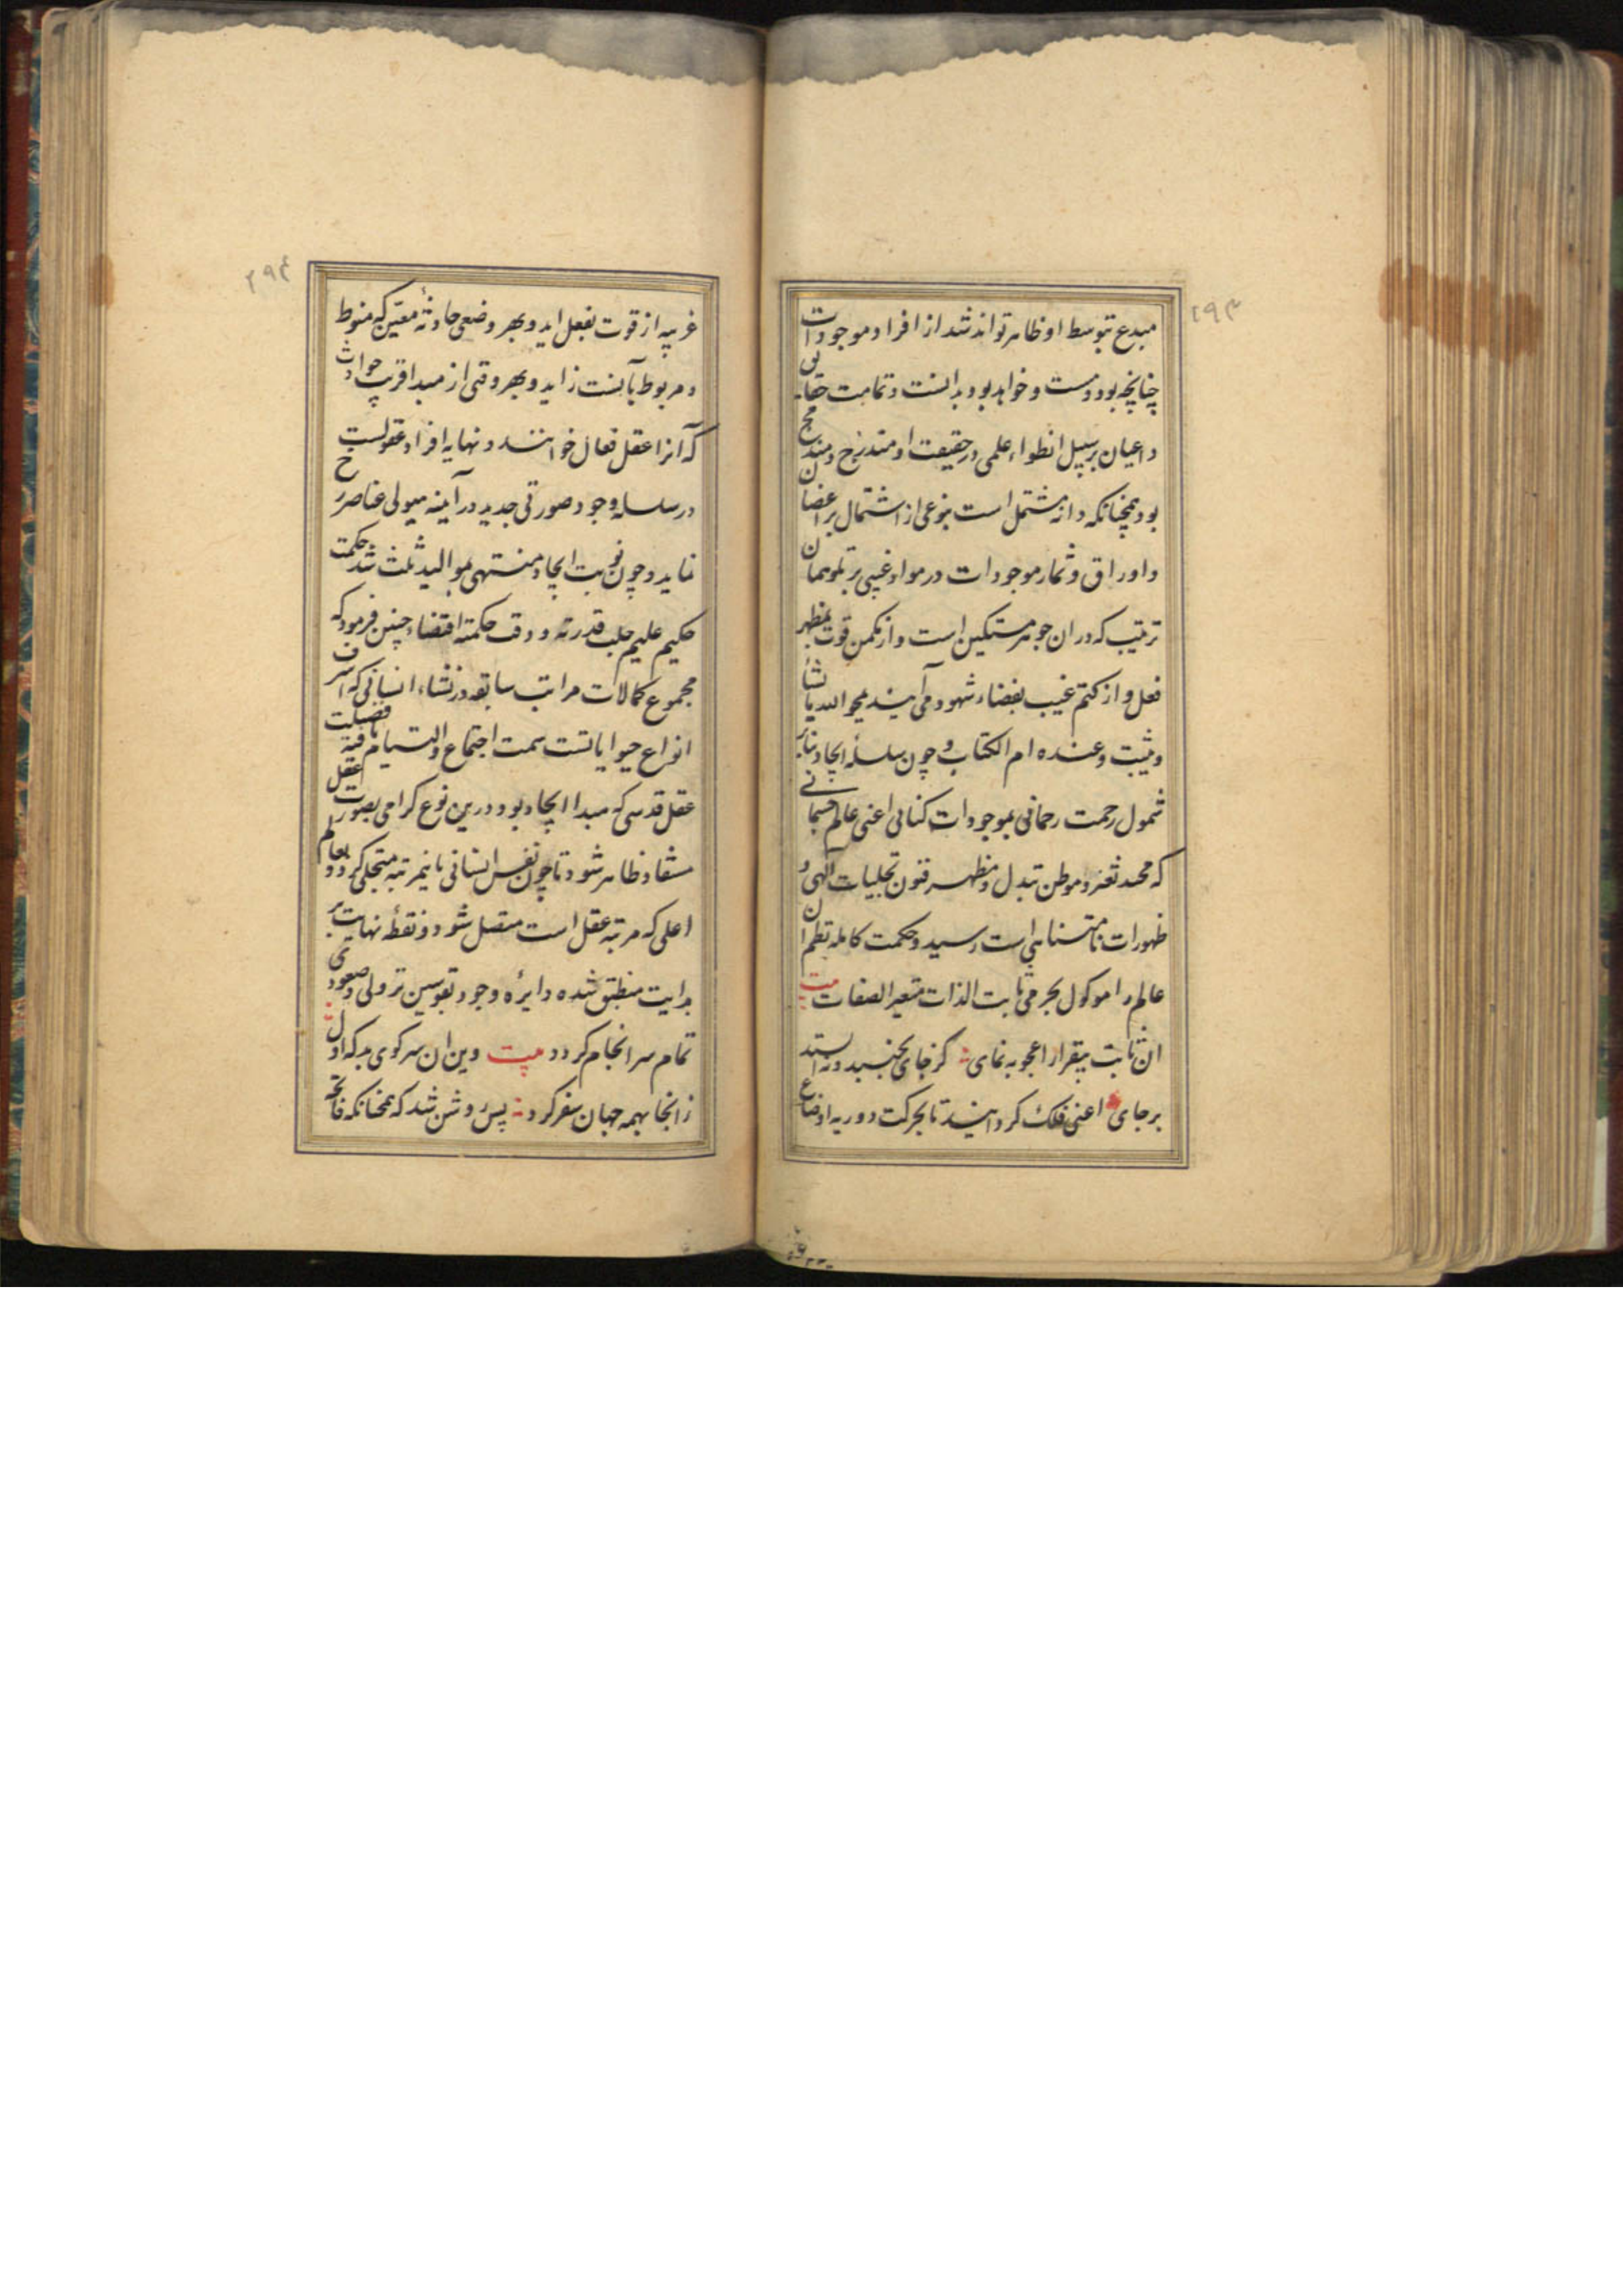 ۲۹۳
مبدع بتوسط او ظاهر تواند شد از افراد موجودات
چنانچه بود و هست و خواهد بود بدانست و تمامت حقایق
و اعیان بر سبیل انطواء علمی در حقیقت او مندرج و مندمج
بود همچنانکه دانه مشتمل است بنوعی از اشتمال بر اغصان
و اوراق و ثمار موجودات در مواد غیبی بر تلو همان
ترتیب که دران جوهر مستکین است و از مکمن قوت بمظهر
فعل و از کتم غیب بفضاء شهود می آیند یمحو الله ما یشاء
و یثبت و عنده ام الکتاب و چون سلسلهٔ ایجاد بنابر
شمول رحمت رحمانی بموجودات کنانی اعنی عالم جسمانی
که محمد تغیر و موطن تبدل و مظهر فنون تجلیات الهی و
ظهورات نامتناهی است رسید و حکمت کامله نظم ان
عالم را موکول بجرمی ثابت الذات متغیر الصفات بیت
ان ثابت بیقرار اعجوبه نمای کز جای بجنبید و نه استد
بر جای اعنی فلک کردانید تا بحرکت دوریه اوضاع
۲۹۴
غریبه از قوت بفعل اید و بهر وضعی حادثهٔ معین که منوط
و مربوط بآنست زاید و بهر وقتی از مبدا قریب حوادث
که آنرا عقل فعال خوانند و نهایه افراد عقولست
در سلسله وجود صورتی جدید در آینه هیولی عناصر رخ
نماید و چون نوبت ایجاد منتهی بموالید ثلث شد حکمت
حکیم علیم جلت قدرته و دقت حکمته اقتضاء چنین فرمود که
مجموع کمالات مراتب سابقه در نشاء انسانی که اشرف
انواع حیوانانست سمت اجتماع و التیام یافته فضیلت
عقل قدسی که مبدا ایجاد بود درین نوع کرامی بصورت عقل
مستفاد ظاهر شود تا چون نفس انسانی باینمرتبه متجلی کردد بعالم
اعلی که مرتبه عقل است متصل شود و نقطهٔ نهایت بر
بدایت منطبق شده دایرهٔ وجود بقوسین نزولی و صعودی
تمام سرانجام کردد بیت وین ان سر کوی بد که اول
زانجا بهمه جهان سفر کرد پس روشن شد که همچنانکه فاتحه